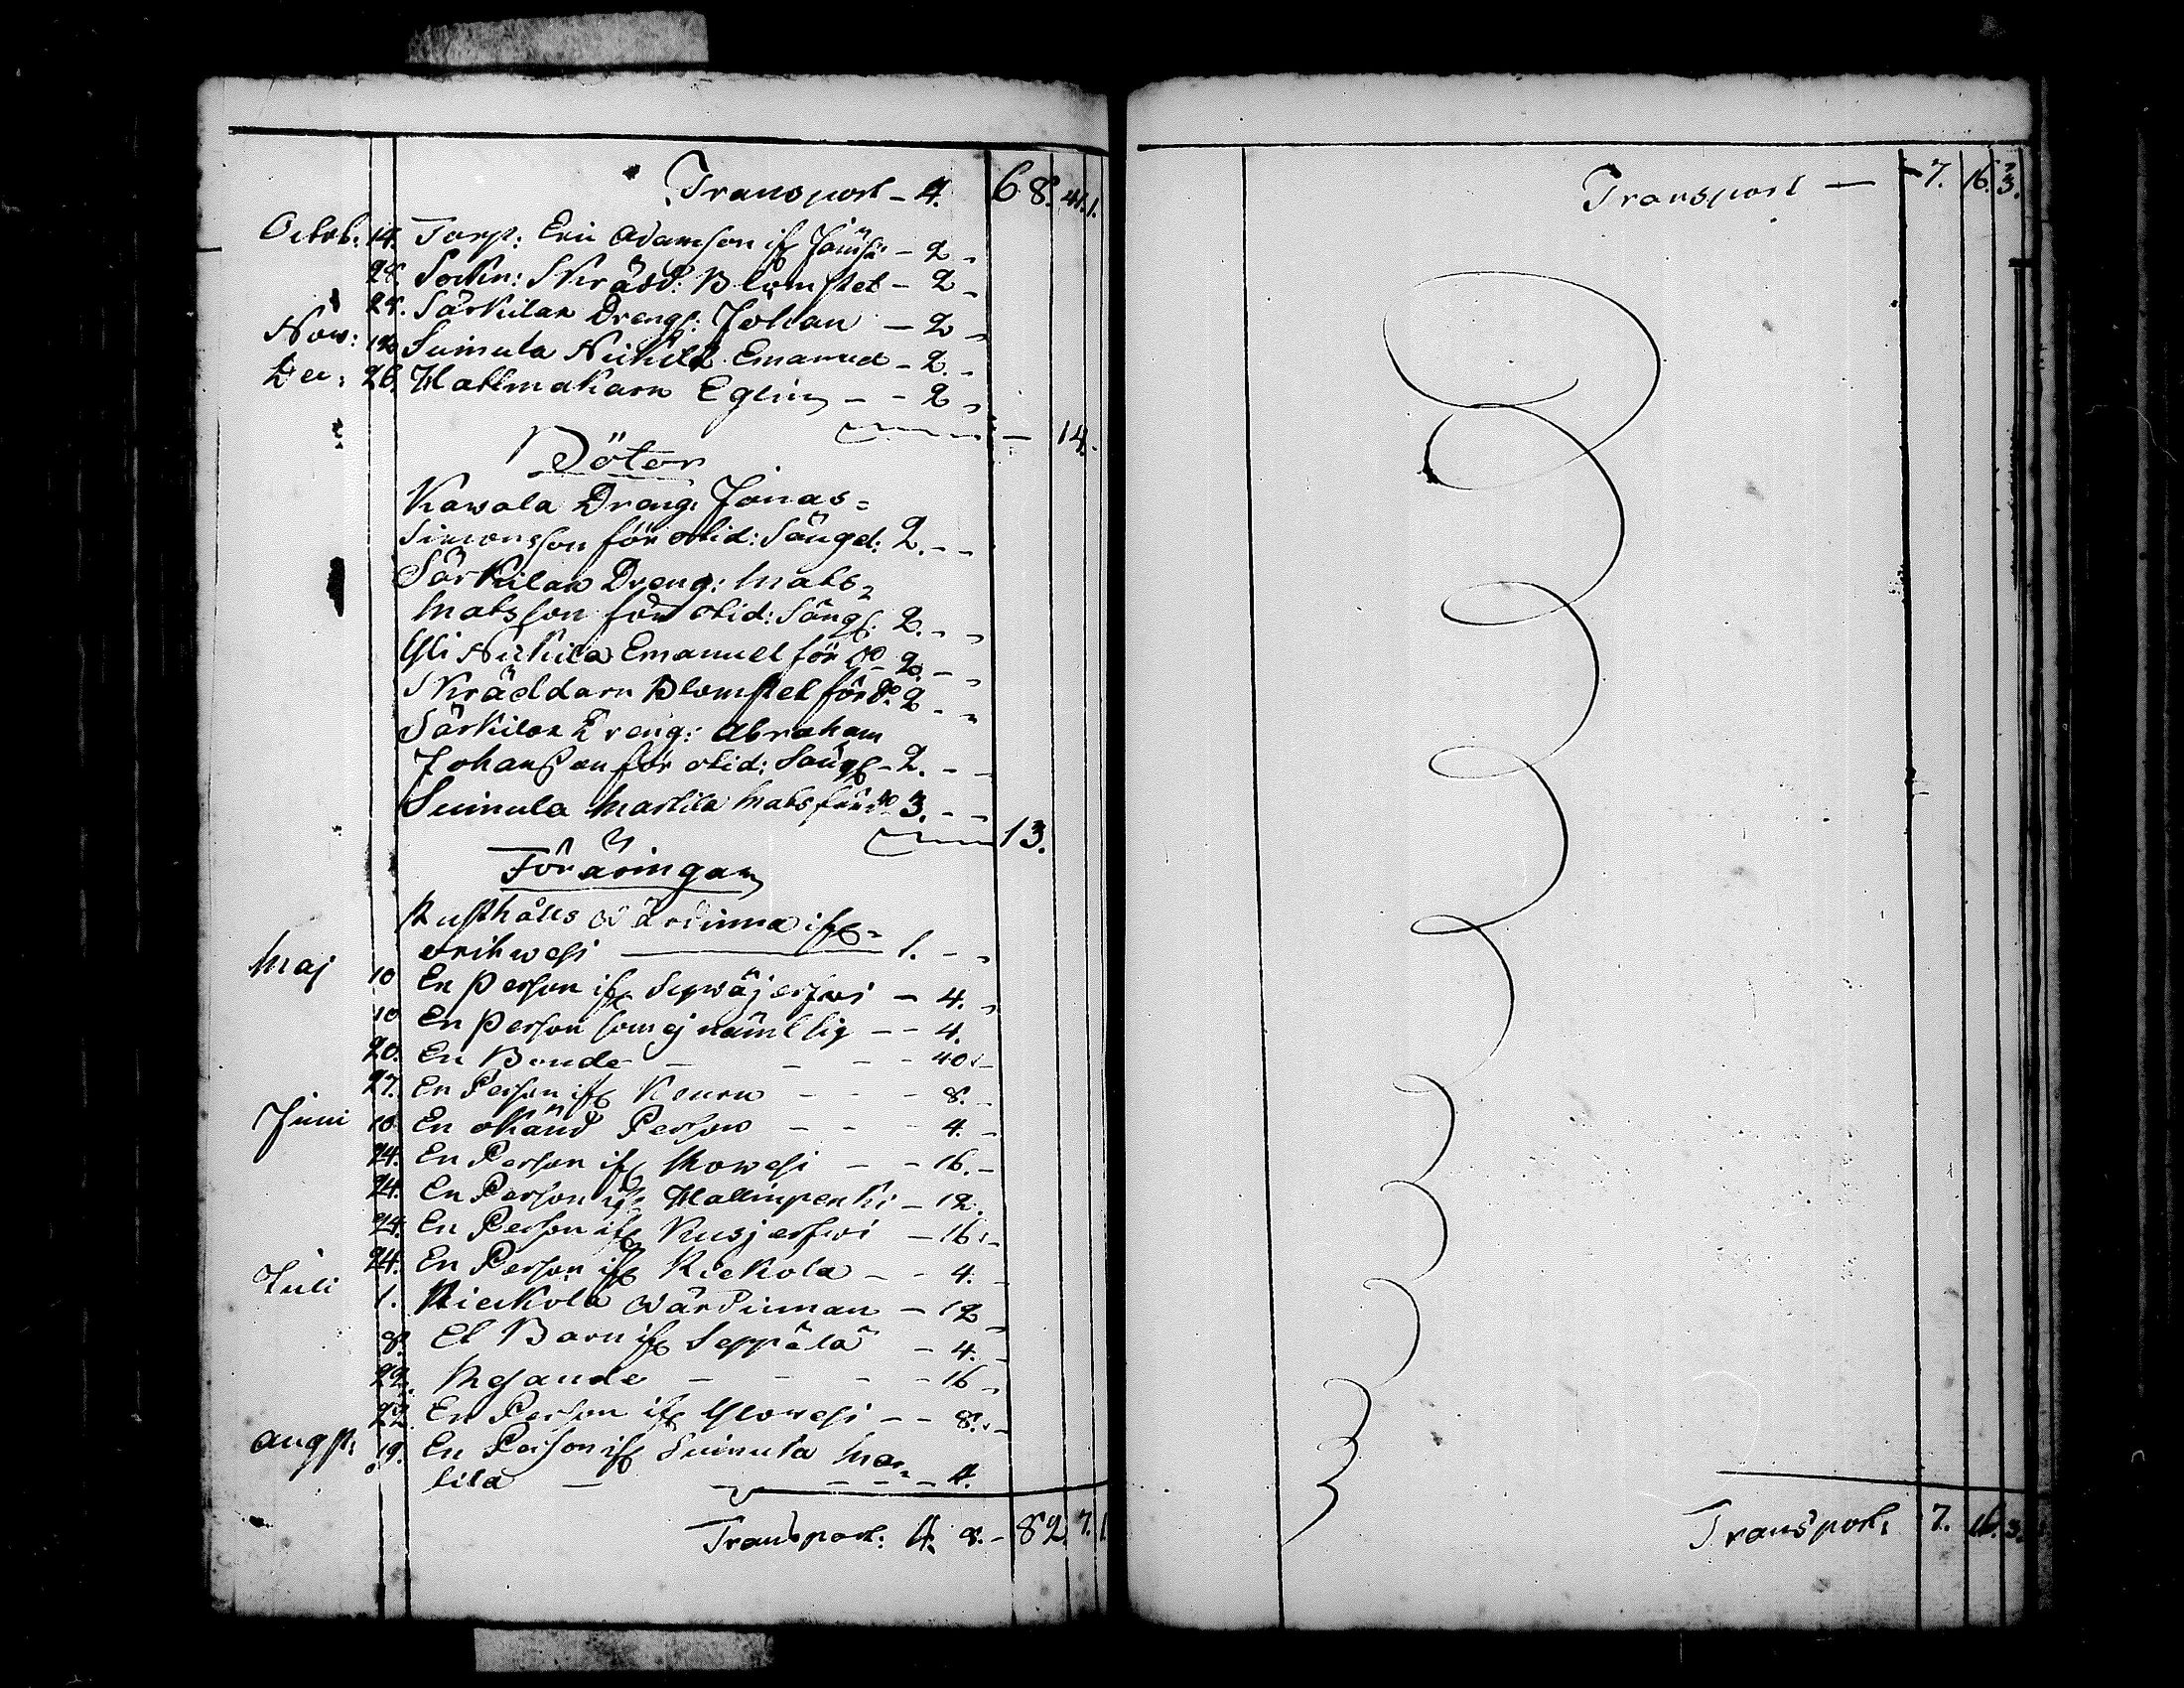 Transport - 4. 68. 41. 1.
Octob: 14. Torp: Eric Adamsson if Jämsä - 2 -
28. Sockn: Skräd: Blomstet - 2 -
28. Särkilax Drengs: Johan - 2 -
Nov: 18 Suinula Nickilä Emanuel - 2. -
Dec: 26. Hattmakarn Eglin - - 2 -
- 14. -
Böter
Kawala Dreng: Jonas=
Simonsson för olid: Sängel: 2. - -
Särkilax Dreng: Mats=
Matsson för olid: Sängl. 2. - -
Yli Nickila Emanuel för do 2. - -
Skräddarn Blomstet för do. 2 - -
Särkilax Dreng: Abraham
Johansson för olid: Sängl - 2. - -
Suinula Martila Mats för do 3. - -
13.
Föräringar
Rusthålls Wärdinna if=
orihwesi 1. - -
Maj 10 En Person if Sepwäjerfwi - 4. -
10 En Person som ej nämt sig - - 4.
20. En Bonde - - - - 40. -
27. En Person if Keuru - - - 8. -
Juni 10 En okänd Person - - - 4. -
24. En Person if Mowesi - - 16. -
24. En Person if Hallinpenki - 12.
24. En Person if Kusjerfwi - 16. -
24. En Person if Rickola - - 4. -
Juli 1. Rieckola Wärdinnan - 12 -
8. Et Barn if Seppälä - 4. -
22. Resande - - - - 16 -
22. En Person if Ylowesi - - 8. -
Augst: 19. En Person if Suinula Mar=
tila - - - - - 4.
Transport: 4. 8. - 82. 7. 1
Transport - 7. 16. 3.
Transport: 7. 16. 3.